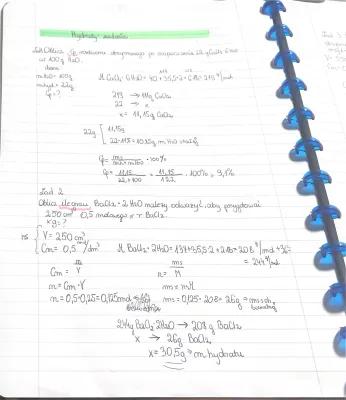 Hydraty - zadania
Zad. Oblicz Cp roztworu otrzymanego po rozpuszczeniu 22g CaCl₂·6H₂O
w 100g H₂O.
dane
mH₂O = 100g
mhydr = 22g
Cp = ?
M CaCl₂·6H₂O = 40 + 35,5·2 + 6·18 = 219 g/mol
219 → 111g CaCl₂
22 → x
x = 11,15g CaCl₂
22g
11,15g
22-11,15 = 10,85g m H₂O
Cp = ms · 100%
Cp = 11,15/22+100 = 11,15/122 · 100% = 9,1%
Zad 2.
Oblicz ile gramów BaCl₂·2H₂O należy odważyć, aby przygotować
250 cm³ 0,5 molowego r-r BaCl₂.
xg = ?
V = 250 cm³
Cm = 0,5 mol/dm³
M BaCl₂·2H₂O = 137 + 35,5·2 + 2·18 = 208 g/mol + 36 =
= 244 g/mol
Cm = n/V
n = ms/M
n = Cm·V
ms = n·M
n = 0,5·0,25 = 0,125 mol
ms = 0,125·208 = 26g → ms
244g BaCl₂·2H₂O → 208g BaCl₂
x → 26g BaCl₂
x = 30,5g → m hydratu